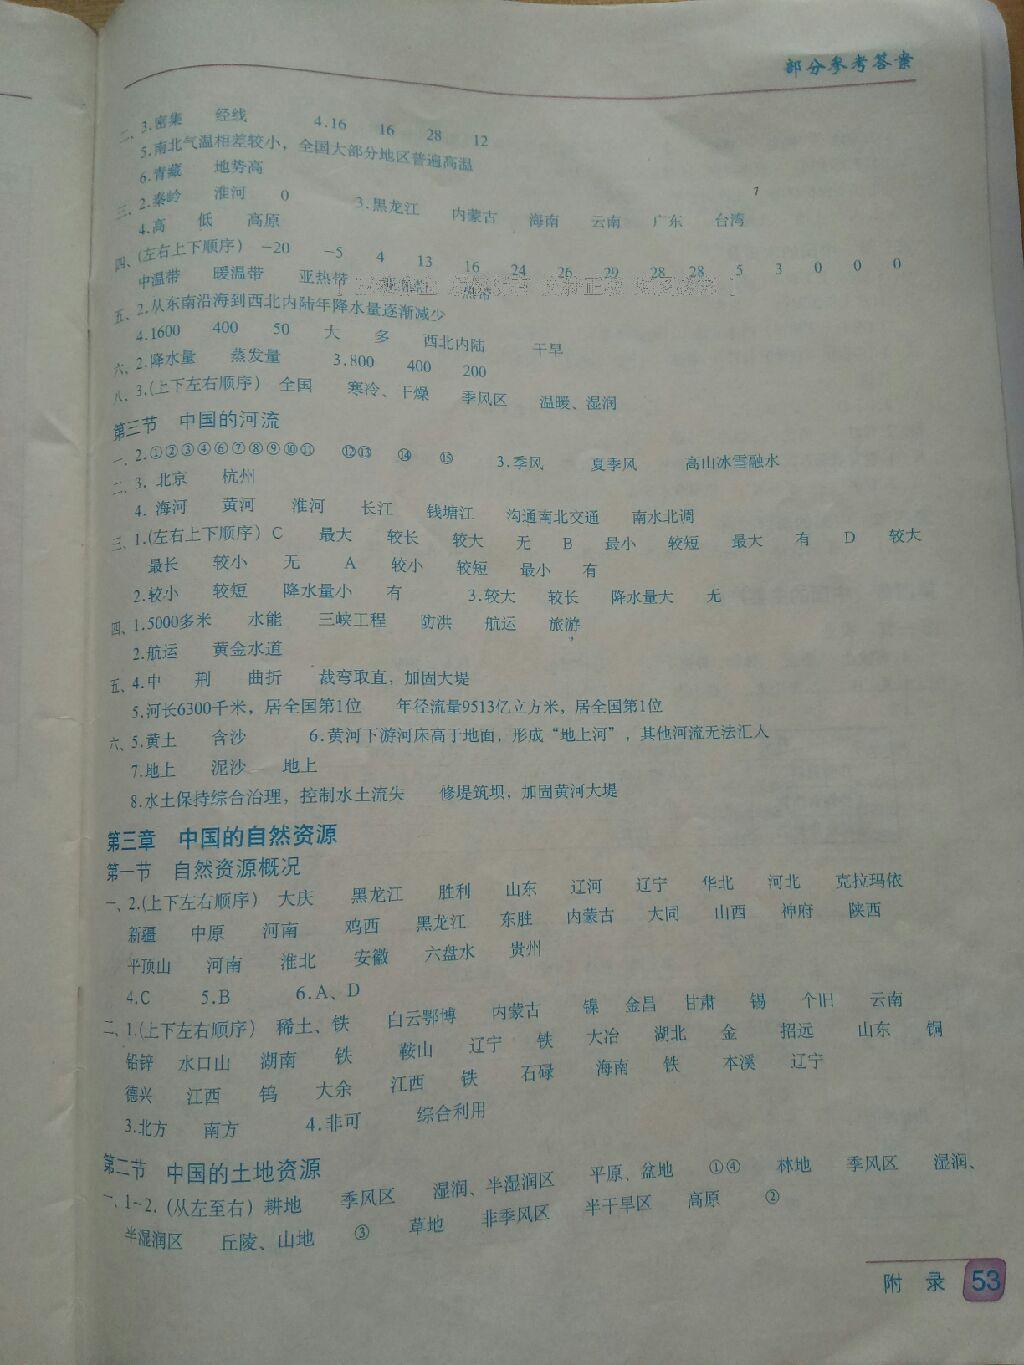 部分参考答案
二、3.密集 经线 4.16 16 28 12
5.南北气温相差较小，全国大部分地区普遍高温
6.青藏 地势高
三、2.秦岭 淮河 0 3.黑龙江 内蒙古 海南 云南 广东 台湾
4.高 低 高原
四、(左右上下顺序) -20 -5 4 13 16 24 26 29 28 28 5 3 0 0 0
中温带 暖温带 亚热带 热带
五、2.从东南沿海到西北内陆年降水量逐渐减少
4.1600 400 50 大 多 西北内陆 干旱
六、2.降水量 蒸发量 3.800 400 200
八、3.(上下左右顺序) 全国 寒冷、干燥 季风区 温暖、湿润
第三节 中国的河流
一、2.①②③④⑥⑦⑧⑨⑩⑪ ⑫⑬ ⑭ ⑮ 3.季风 夏季风 高山冰雪融水
二、3. 北京 杭州
4. 海河 黄河 淮河 长江 钱塘江 沟通南北交通 南水北调
三、1.(左右上下顺序) C 最大 较长 较大 无 B 最小 较短 最大 有 D 较大
最长 较小 无 A 较小 较短 最小 有
2.较小 较短 降水量小 有 3.较大 较长 降水量大 无
四、1.5000多米 水能 三峡工程 防洪 航运 旅游
2.航运 黄金水道
五、4.中 荆 曲折 裁弯取直，加固大堤
5.河长6300千米，居全国第1位 年径流量9513亿立方米，居全国第1位
六、5.黄土 含沙 6.黄河下游河床高于地面，形成“地上河”，其他河流无法汇入
7.地上 泥沙 地上
8.水土保持综合治理，控制水土流失 修堤筑坝，加固黄河大堤
第三章 中国的自然资源
第一节 自然资源概况
一、2.(上下左右顺序) 大庆 黑龙江 胜利 山东 辽河 辽宁 华北 河北 克拉玛依
新疆 中原 河南 鸡西 黑龙江 东胜 内蒙古 大同 山西 神府 陕西
平顶山 河南 淮北 安徽 六盘水 贵州
4.C 5.B 6.A、D
二、1.(上下左右顺序) 稀土、铁 白云鄂博 内蒙古 镍 金昌 甘肃 锡 个旧 云南
铅锌 水口山 湖南 铁 鞍山 辽宁 铁 大冶 湖北 金 招远 山东 铜
德兴 江西 钨 大余 江西 铁 石碌 海南 铁 本溪 辽宁
3.北方 南方 4.非可 综合利用
第二节 中国的土地资源
一、1~2. (从左至右) 耕地 季风区 湿润、半湿润区 平原、盆地 ①④ 林地 季风区 湿润、
半湿润区 丘陵、山地 ③ 草地 非季风区 半干旱区 高原 ②
附 录 53